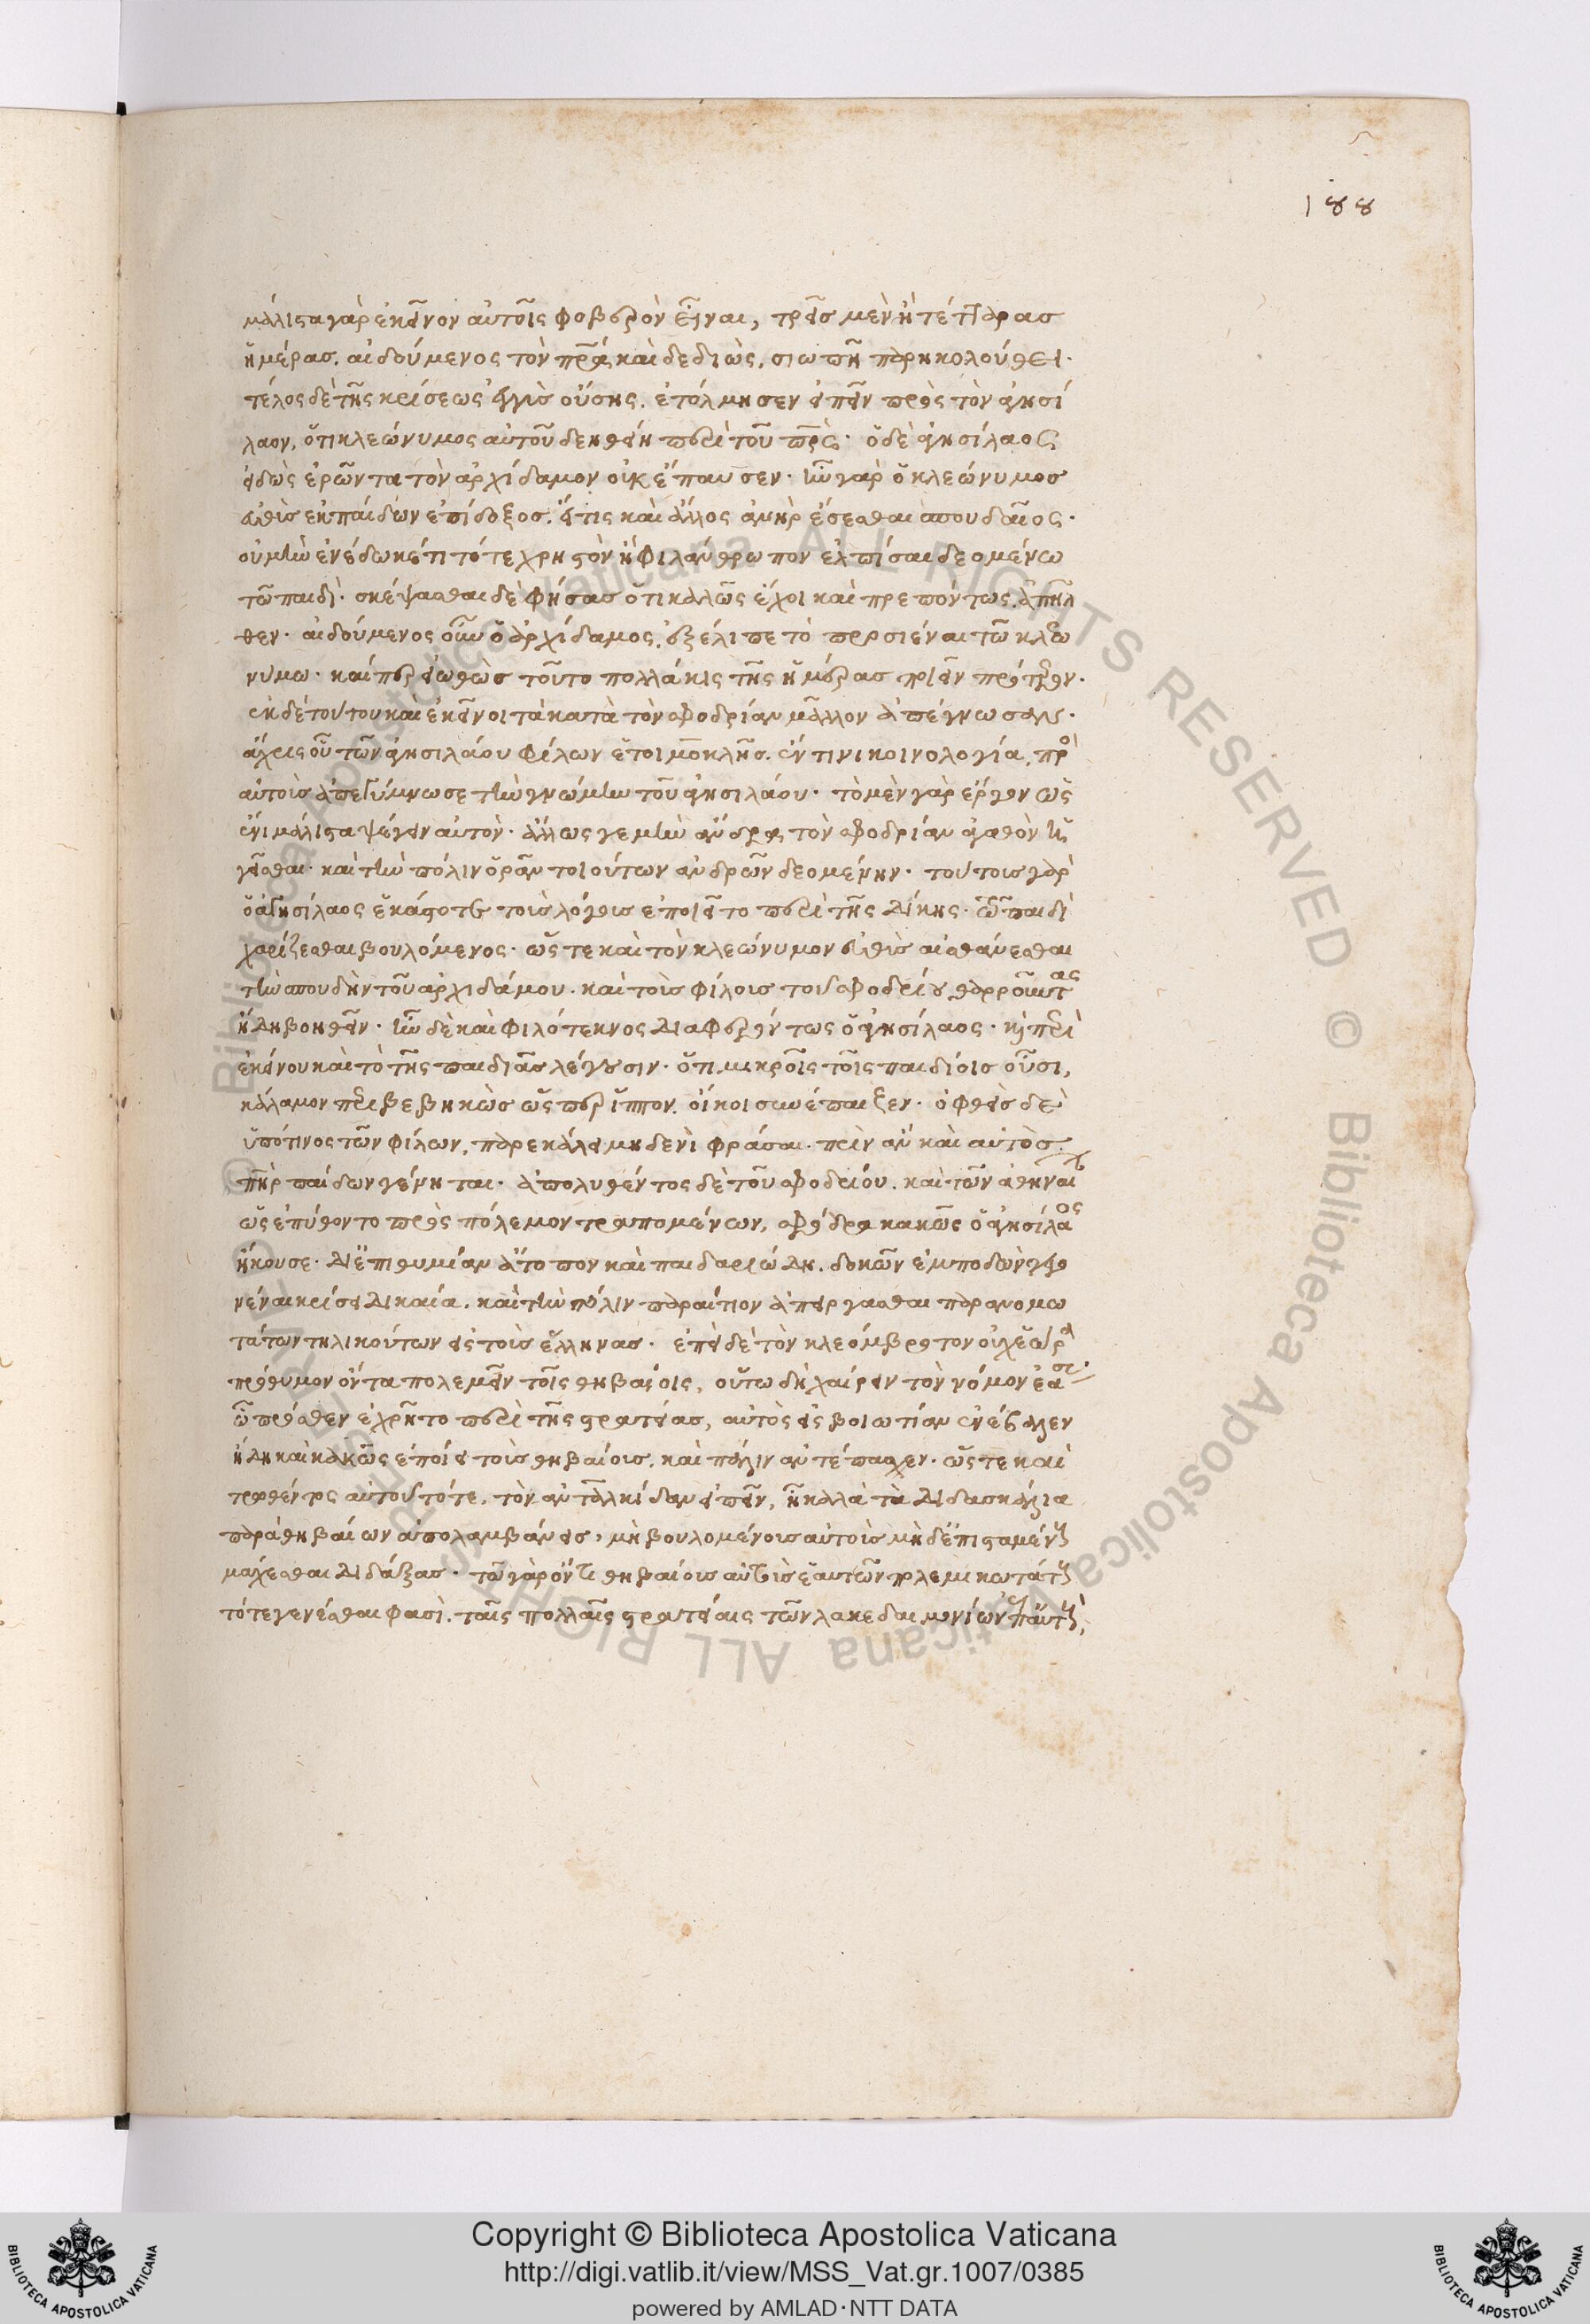 188
μάλιστα γὰρ ἐκεῖνον αὐτοῖς φοβερὸν εἶναι, τρεῖς μὲν ἢ τέτταρας
ἡμέρας. αἰδούμενος τὸν πρα καὶ δεδιὼς, σιωπῆ παρηκολούθει·
τέλος δὲ τῆς κρίσεως ἐγγὺς οὔσης. ἐτόλμησεν εἰπεῖν πρὸς τὸν ἀγησί
λαον, ὅτι κλεώνυμος αὐτοῦ δεηθείη περὶ τοῦ πρς· ὁ δὲ ἀγησίλαος
εἰδὼς ἐρῶντα τὸν ἀρχίδαμον οὐκ ἔπαυσεν· ἦν γὰρ ὁ κλεώνυμος
εὐθὺς ἐκ παίδων ἐπίδοξος. εἴ τις καὶ ἄλλος ἀνὴρ ἔσεσθαι σπουδαῖος·
οὐ μὴν ἐνέδωκέ τι τότε χρηστὸν ἢ φιλάνθρωπον ἐλπίσαι δεομένω
τῶ παιδὶ· σκέψασθαι δὲ φήσας ὅτι καλῶς ἔχοι καὶ πρεπόντως. ἀπῆλ
θεν· αἰδούμενος οὖν ὁ ἀρχίδαμος, ἐξέλιπε τὸ προσιέναι τῶ κλεω
νύμω· καίπερ εἰωθὼς τοῦτο πολλάκις τῆς ἡμέρας ποιεῖν πρότερον·
ἐκ δὲ τούτου καὶ ἐκεῖνοι τὰ κατὰ τὸν σφοδρίαν μᾶλλον ἀπέγνωσαν·
ἄχρις οὗ τῶν ἀγησιλάου φίλων ἐτοιμοκλῆς. ἔν τινι κοινολογία, πρὸ
αὐτοὺς ἀπεγύμνωσε τὴν γνώμην τοῦ ἀγησιλάου· τὸ μὲν γὰρ ἔργον ὡς
ἔνι μάλιστα ψέγειν αὐτὸν· ἄλλως γε μὴν ἄνδρα τὸν σφοδρίαν ἀγαθὸν ἡ
γεῖσθαι· καὶ τὴν πόλιν ὁρᾶν τοιούτων ἀνδρῶν δεομένην· τούτους γὰρ
ὁ ἀγησίλαος ἑκάστοτε τοὺς λόγους ἐποιεῖτο περὶ τῆς δίκης· τῶ παιδὶ
χαρίζεσθαι βουλόμενος· ὥστε καὶ τὸν κλεώνυμον εὐθὺς αἰσθάνεσθαι
τὴν σπουδὴν τοῦ ἀρχιδάμου. καὶ τοὺς φίλους τοῦ σφοδρίου θαρροῦντας
ἤδη βοηθεῖν· ἦν δὲ καὶ φιλότεκνος διαφερόντως ὁ ἀγησίλαος· κὶ περὶ
ἐκείνου καὶ τὸ τῆς παιδιᾶς λέγουσιν· ὅτι μικροῖς τοῖς παιδίοις οὖσι,
κάλαμον περιβεβηκὼς ὥσπερ ἵππον. οἴκοι συνέπαιξεν· ὀφθεὶς δὲ
ὑπό τινος τῶν φίλων, παρεκάλει μηδενὶ φράσαι. πρὶν ἂν καὶ αὐτὸς
πὴρ παίδων γένηται· ἀπολυθέντος δὲ τοῦ σφοδρίου. καὶ τῶν ἀθηναί
ὡς ἐπύθοντο πρὸς πόλεμον τραπομένων, σφόδρα κακῶς ὁ ἀγησίλαος
ἤκουσε· δι' ἐπιθυμίαν ἄτοπον καὶ παιδαριώδη. δοκῶν ἐμποδὼν γεγο
νέναι κρίσει δικαία. καὶ τὴν πόλιν παραίτιον ἀπειργάσθαι παρανομω
τάτων τηλικούτων εἰς τοὺς ἕλληνας· ἐπεὶ δὲ τὸν κλεόμβροτον οὐχ ἑώρα
πρόθυμον ὄντα πολεμεῖν τοῖς θηβαίοις, οὕτω δὴ χαίρειν τὸν νόμον ἐάσας
ᾧ πρόσθεν ἐχρῆτο περὶ τῆς στρατείας, αὐτὸς εἰς βοιωτίαν ἐνέβαλεν
ἤδη καὶ κακῶς ἐποίει τοὺς θηβαίους. καὶ πάλιν ἀντέπασχεν· ὥστε καὶ
τρωθέντος αὐτοῦ τότε, τὸν ἀνταλκίδαν εἰπεῖν, ἦ καλὰ τὰ διδασκάλια
παρὰ θηβαίων ἀπολαμβάνεις, μὴ βουλομένους αὐτοὺς μηδ' ἐπισταμένους
μάχεσθαι διδάξας· τῶ γὰρ ὄντι θηβαίους αὐτοὺς ἑαυτῶν πολεμικωτάτους
τότε γενέσθαι φασὶ. ταῖς πολλαῖς στρατείαις τῶν λακεδαιμονίων ἐπ' αὐτοὺς,
Copyright © Biblioteca Apostolica Vaticana
http://digi.vatlib.it/view/MSS_Vat.gr.1007/0385
powered by AMLAD·NTT DATA
BIBLIOTECA APOSTOLICA VATICANA
BIBLIOTECA APOSTOLICA VATICANA
© Biblioteca Apostolica Vaticana ALL RIGHTS RESERVED © Biblioteca Apostolica Vaticana ALL RIGHTS RESERVED